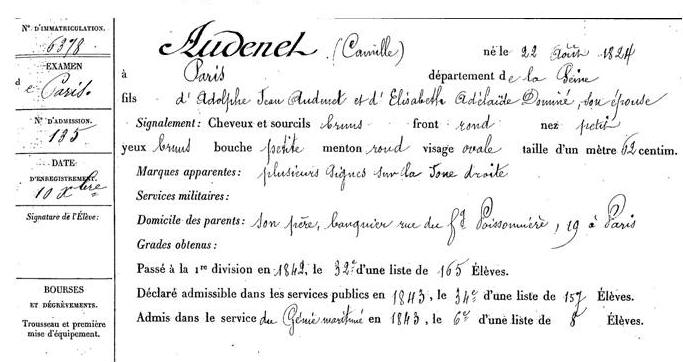 N° D'IMMATRICULATION.
6378
EXAMEN
de Paris.
N° D'ADMISSION.
135
DATE
D'ENREGISTREMENT.
10 Xbre
Signature de l'Élève:
BOURSES
ET DÉGRÈVEMENTS.
Trousseau et première
mise d'équipement.
Audenet (Camille) né le 22 Août 1824
à Paris département de la Seine
fils d'Adolphe Jean Audenet et d'Elisabeth Adélaïde Dominé, son épouse
Signalement: Cheveux et sourcils bruns front rond nez petit
yeux bruns bouche petite menton rond visage ovale taille d'un mètre 62 centim.
Marques apparentes: plusieurs signes sur la Joue droite
Services militaires:
Domicile des parents: son père, banquier rue du fg Poissonnière, 19 à Paris
Grades obtenus:
Passé à la 1re division en 1842, le 32e d'une liste de 165 Élèves.
Déclaré admissible dans les services publics en 1843, le 34e d'une liste de 157 Élèves.
Admis dans le service du Génie maritime en 1843, le 6e d'une liste de 8 Élèves.